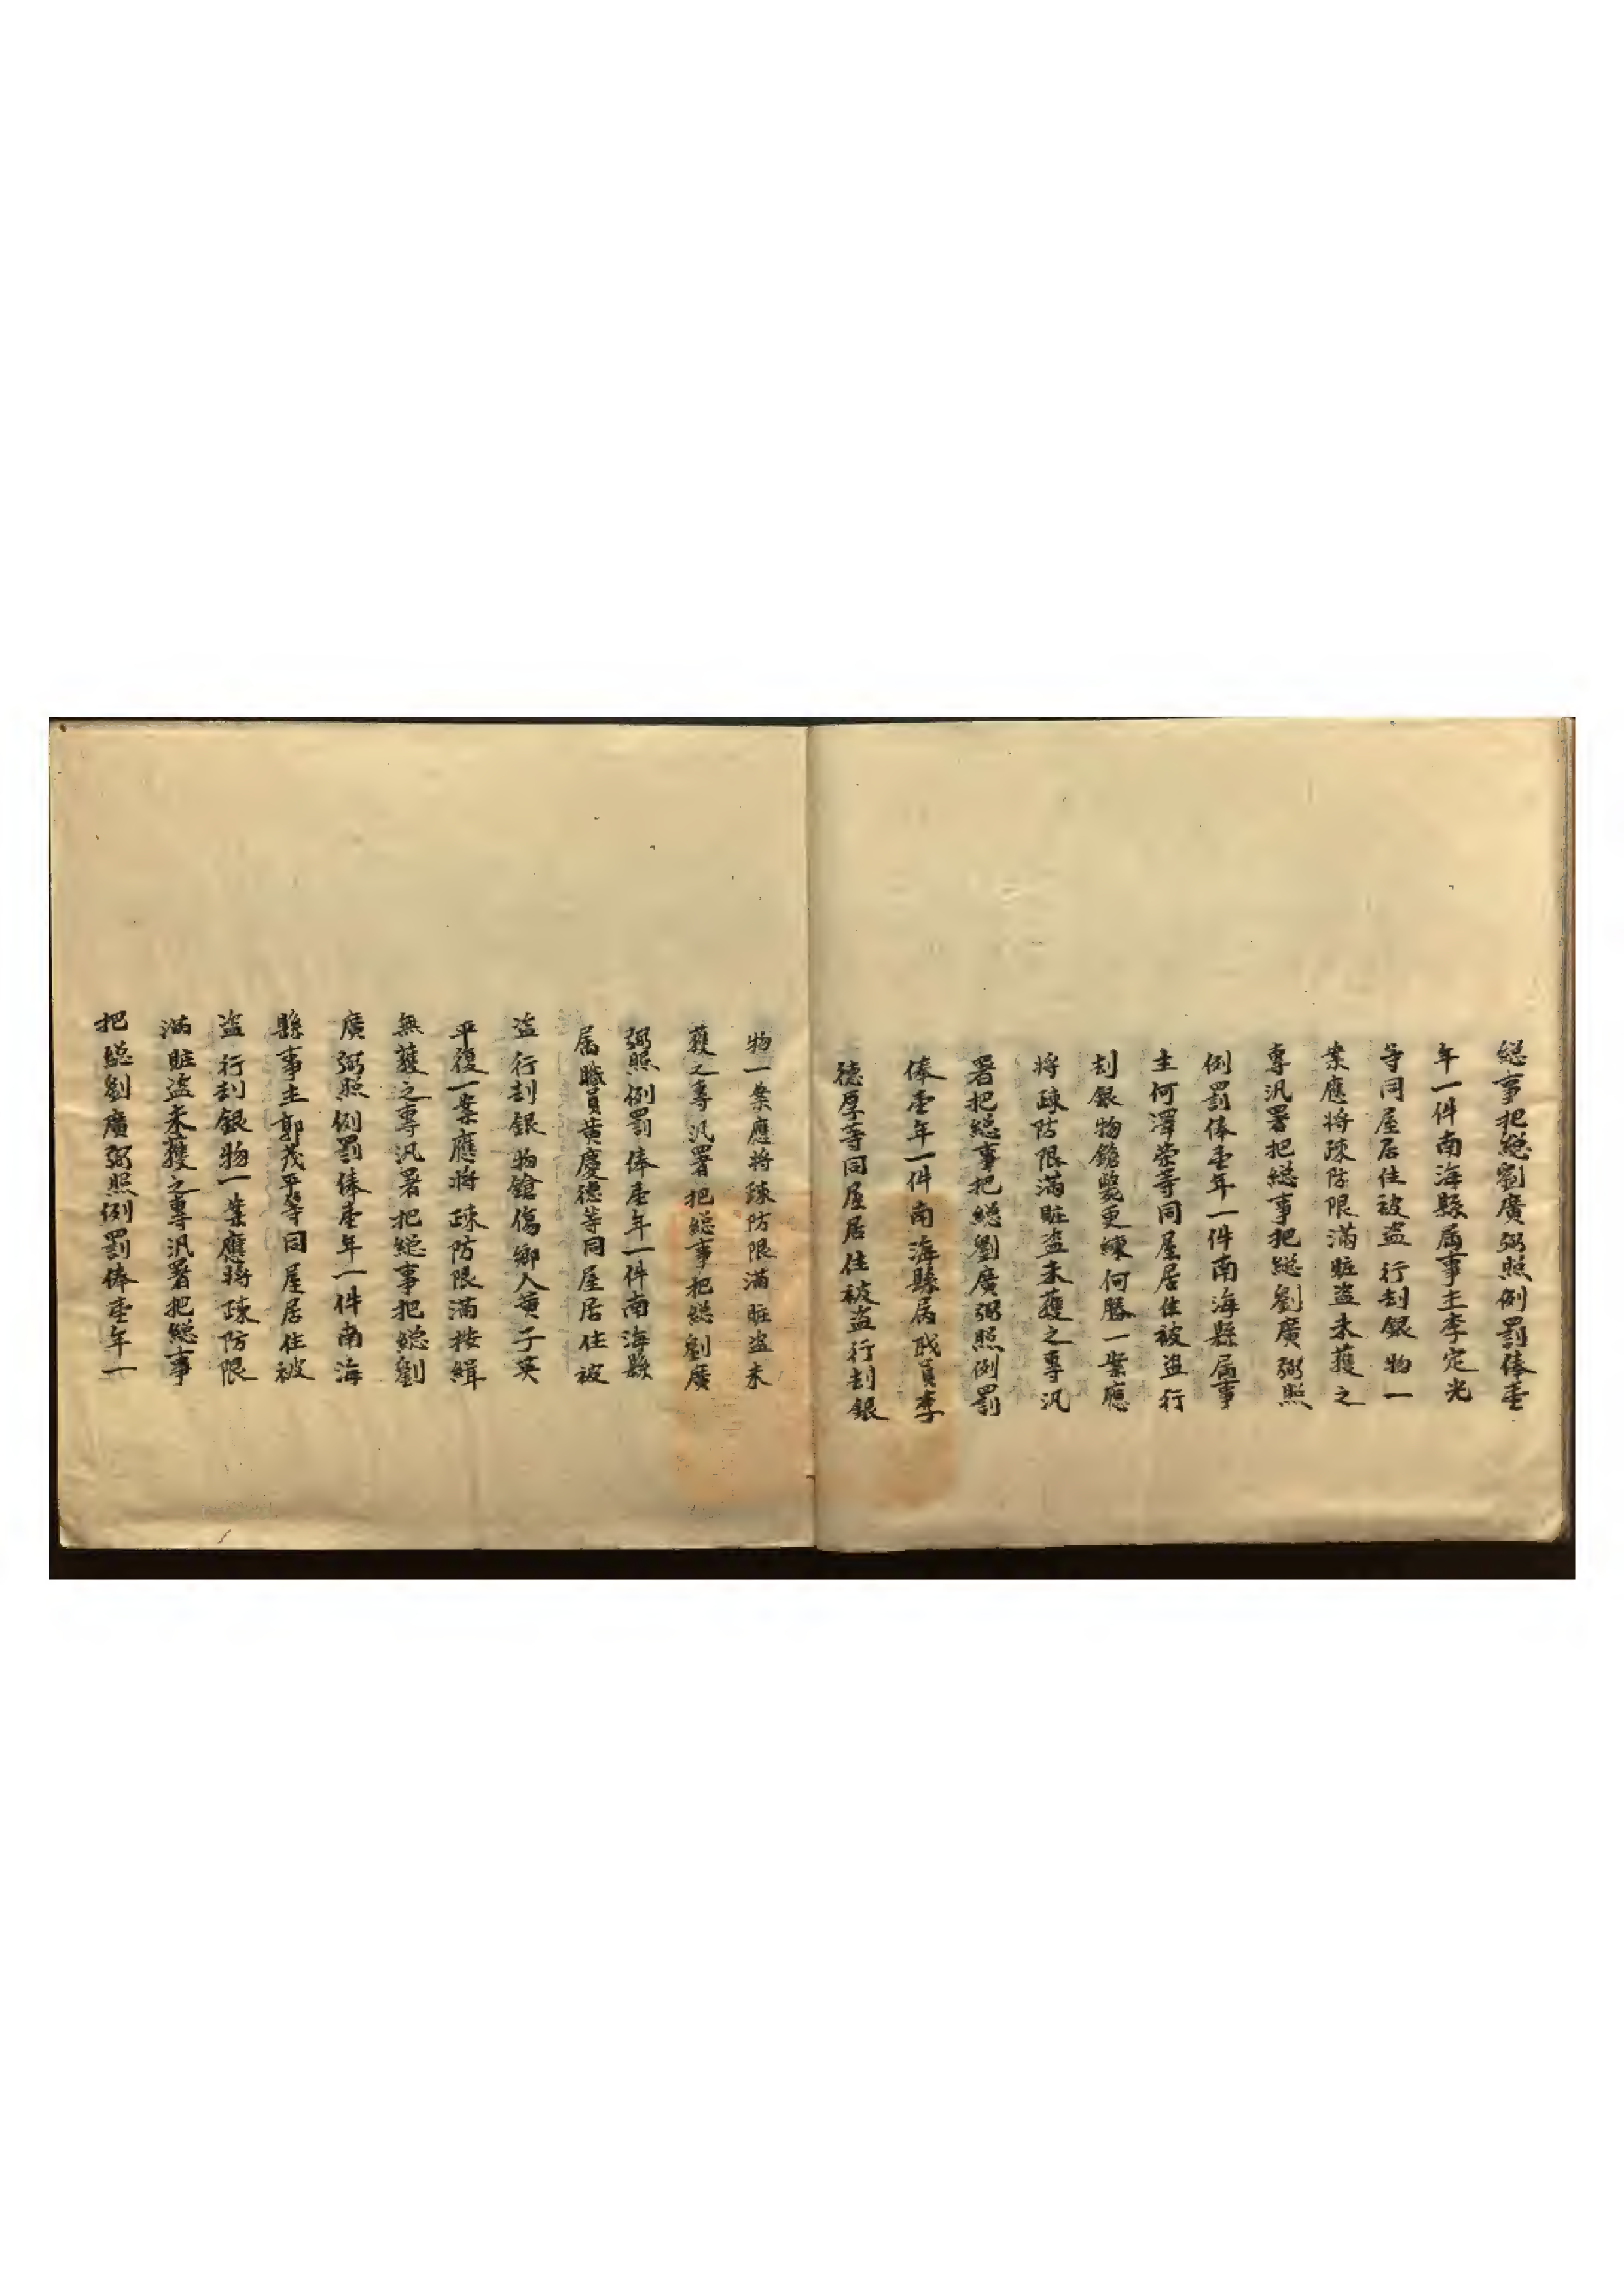 總事把總劉廣弼照例罰俸壹
年一件南海縣属事主李定光
等同屋居住被盗行刦銀物一
案應将疎防限滿賍盗未獲之
專汛署把總事把總劉廣弼照
例罰俸壹年一件南海縣属事
主何澤崇等同屋居住被盗行
刦銀物鎗斃更練何勝一案應
将疎防限滿賍盗未獲之專汛
署把總事把總劉廣弼照例罰
俸壹年一件南海縣属戝員李
德厚等同屋居住被盗行刦銀
物一案應将疎防限滿賍盗未
獲之專汛署把總事把總劉廣
弼照例罰俸壹年一件南海縣
属職員黄慶德等同屋居住被
盗行刦銀物鎗傷鄉人黄子英
平復一案應将疎防限滿按緝
無獲之專汛署把總事把總劉
廣弼照例罰俸壹年一件南海
縣事主郭茂平等同屋居住被
盗行刦銀物一案應将疎防限
滿賍盗未獲之專汛署把總事
把總劉廣弼照例罰俸壹年一